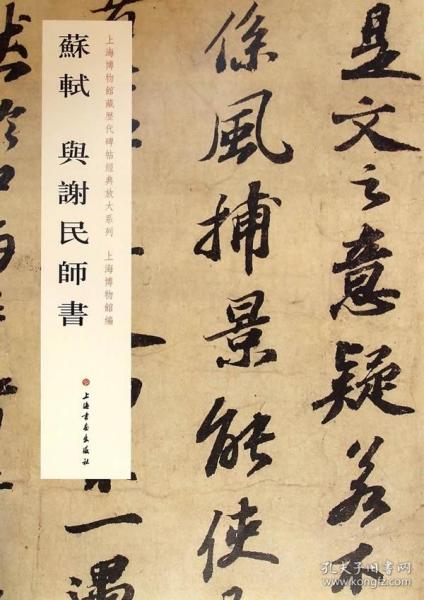 是文之意疑若不
係風捕景能使
一遇
上海博物館藏歷代碑帖經典放大系列 上海博物館編
蘇軾 與謝民師書
上海書畫出版社
孔夫子旧书网
www.kongfz.com